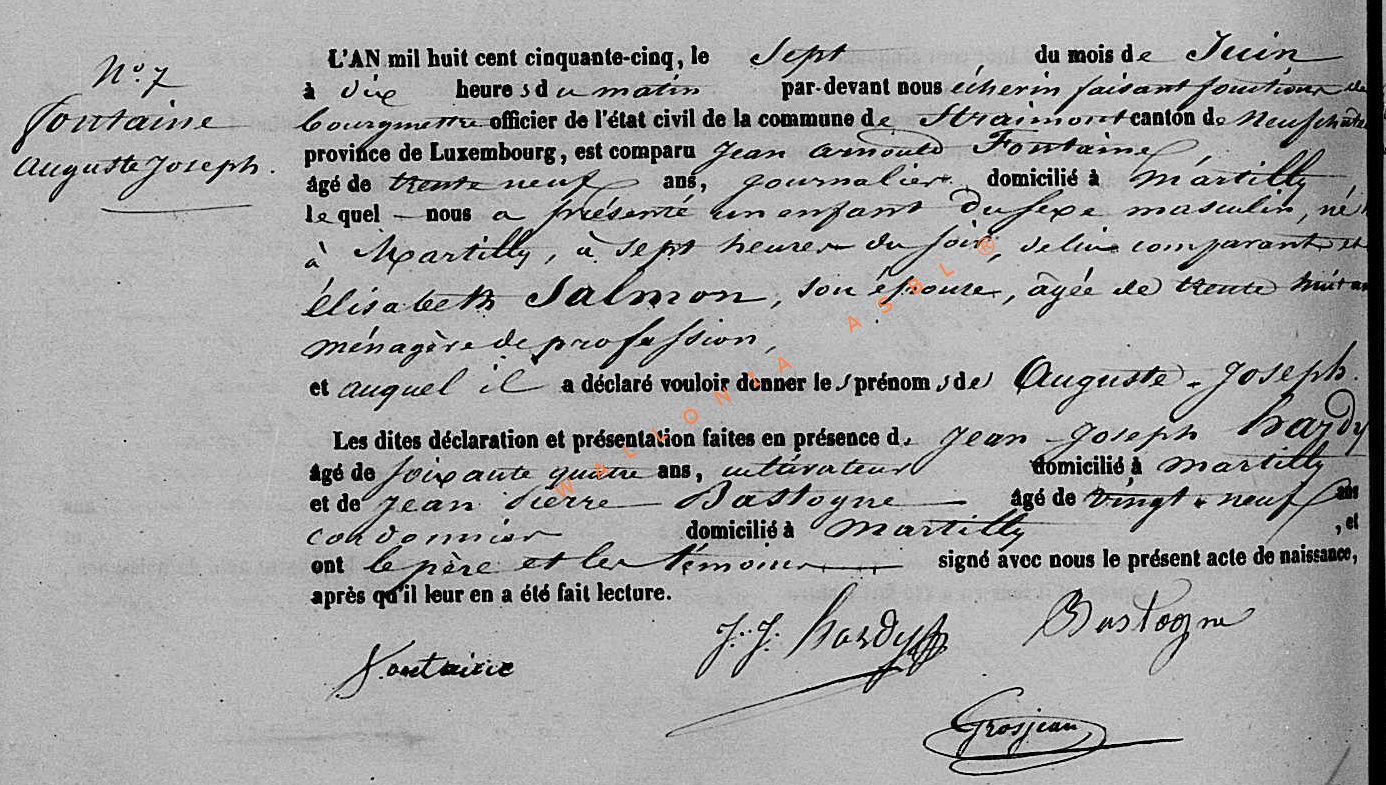 N.o 7
Fontaine
Auguste Joseph.
L'AN mil huit cent cinquante-cinq, le Sept du mois de Juin
à dix heures du matin par-devant nous échevin faisant fonctions de
bourgmestre officier de l'état civil de la commune de Straimont canton de Neufchateau
province de Luxembourg, est comparu Jean Arnould Fontaine
âgé de trente neuf ans, journalier domicilié à Martilly
le quel nous a présenté un enfant du sexe masculin, né
à Martilly, à sept heures du soir, de lui comparant et
élisabeth Salmon, son épouse, agée de trente huit an
ménagère de profession,
et auquel il a déclaré vouloir donner les prénoms de Auguste-Joseph.
Les dites déclaration et présentation faites en présence de Jean-Joseph hardy
âgé de soixante quatre ans, cultivateur domicilié à Martilly
et de Jean Pierre Bastogne âgé de vingt-neuf ans
cordonnier domicilié à Martilly, et
ont le père et les témoins signé avec nous le présent acte de naissance,
après qu'il leur en a été fait lecture.
Fontaine J. J. hardy Bastogne
Grosjean
WALLONIA ASBL ®